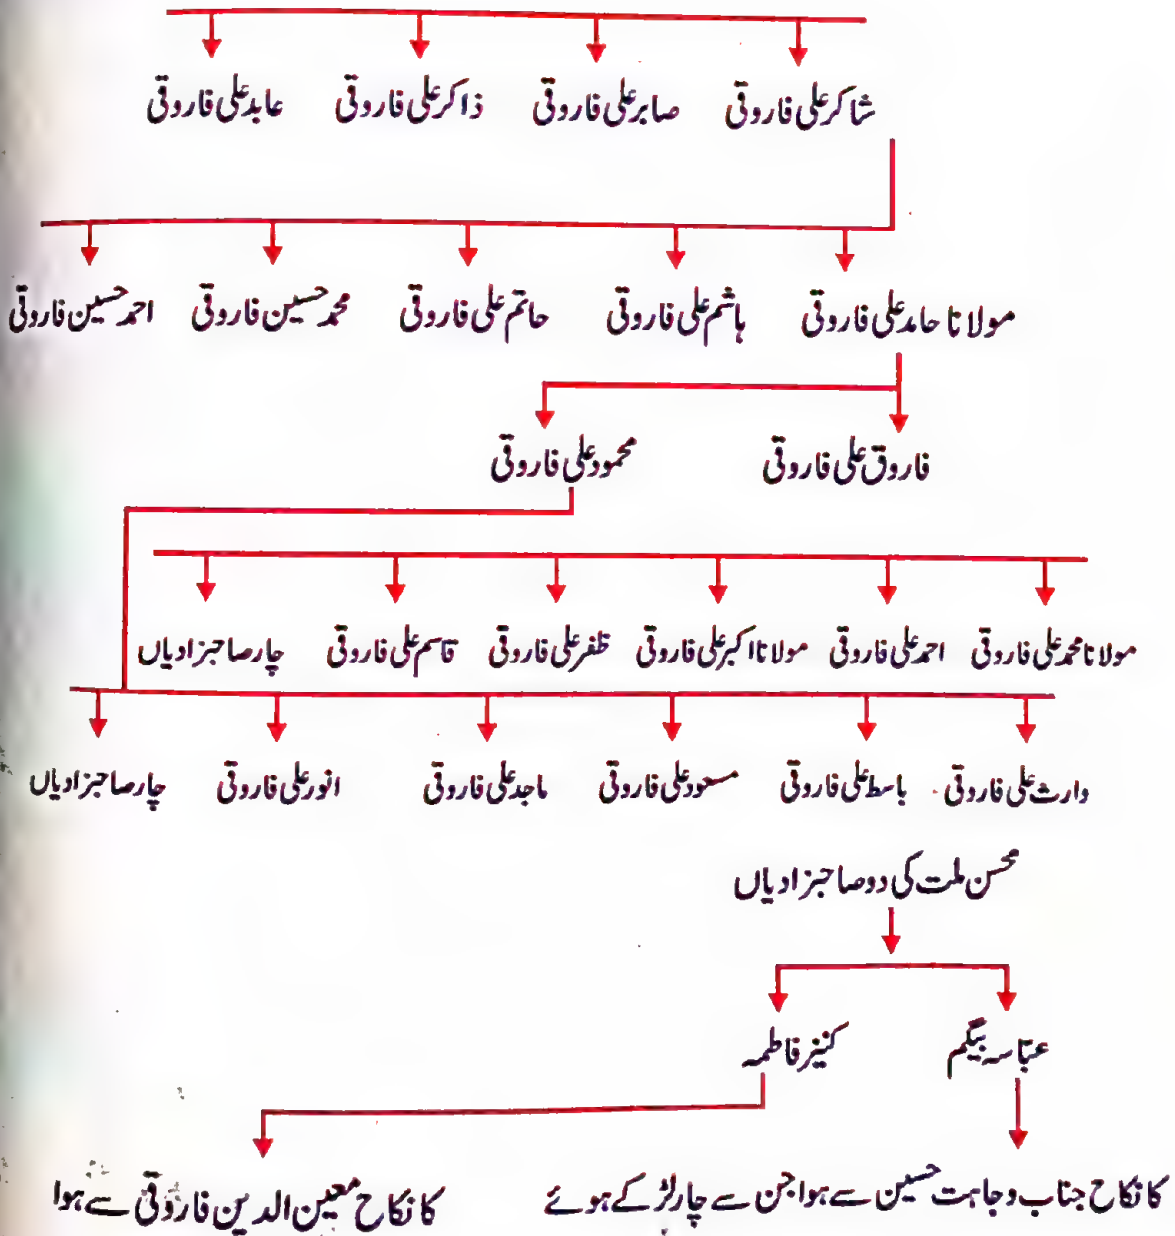 شاکر علی فاروقی صابر علی فاروقی ذاکر علی فاروقی عابد علی فاروقی
مولانا حامد علی فاروقی ہاشم علی فاروقی حاتم علی فاروقی محمد حسین فاروقی احمد حسین فاروقی
فاروق علی فاروقی محمود علی فاروقی
مولانا محمد علی فاروقی احمد علی فاروقی مولانا اکبر علی فاروقی ظفر علی فاروقی قاسم علی فاروقی چار صاحبزادیاں
وارث علی فاروقی باسط علی فاروقی مسعود علی فاروقی ماجد علی فاروقی انور علی فاروقی چار صاحبزادیاں
محسن ملت کی دو صاحبزادیاں
عبّاسہ بیگم کنیز فاطمہ
کا نکاح جناب وجاہت حسین سے ہوا جن سے چار لڑکے ہوئے کا نکاح معین الدین فاروقی سے ہوا